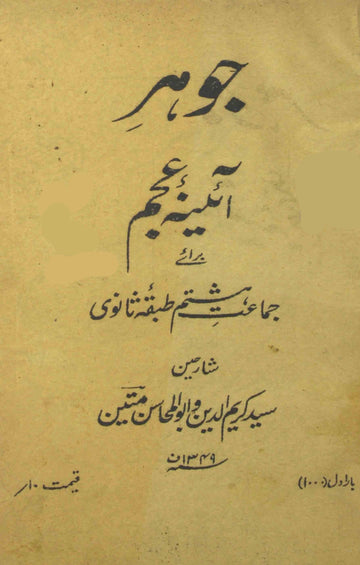 جوہرِ
آئینۂ عجم
برائے
جماعت ہشتم طبقۂ ثانوی
شارحین
سید کریم الدین و ابوالمحاسن متین
۱۳۴۹ف
بار اول (۱۰۰۰)
قیمت ۱۰؍